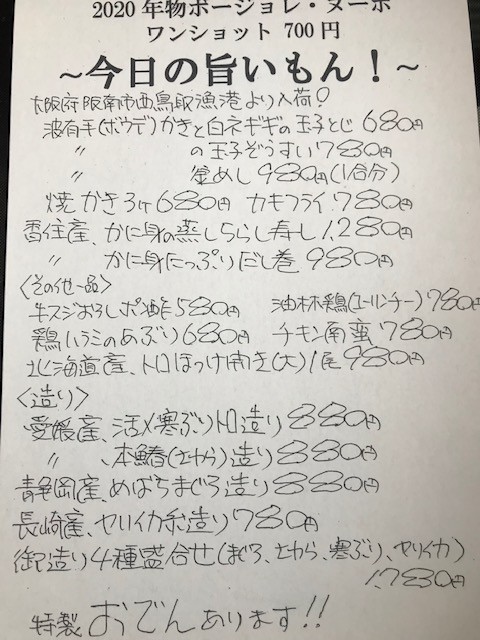 2020年物ボージョレ・ヌーボ
ワンショット 700円
~今日の旨いもん!~
大阪府阪南市西鳥取漁港より入荷!
波有手(ボウデ)かきと白ネギの玉子とじ 680円
〃 の玉子ぞうすい780円
〃 釜めし 980円(1合分)
焼かき3ヶ680円 カキフライ780円
香住産、かに身の蒸しちらし寿し1,280円
〃 かに身たっぷりだし巻 980円
〈その他一品〉
牛スジおろしポン酢580円 油淋鶏(ユーリンチー)780円
鶏ハラミのあぶり680円 チキン南蛮 780円
北海道産、トロほっけ開き(大)1尾980円
〈造り〉
愛媛産、活〆寒ぶりトロ造り880円
〃 、本鰆(さわら)造り880円
静岡産、めばちまぐろ造り880円
長崎産、ヤリイカ糸造り780円
御造り4種盛合せ(まぐろ、さわら、寒ぶり、ヤリイカ)
1,780円
特製 おでんあります!!